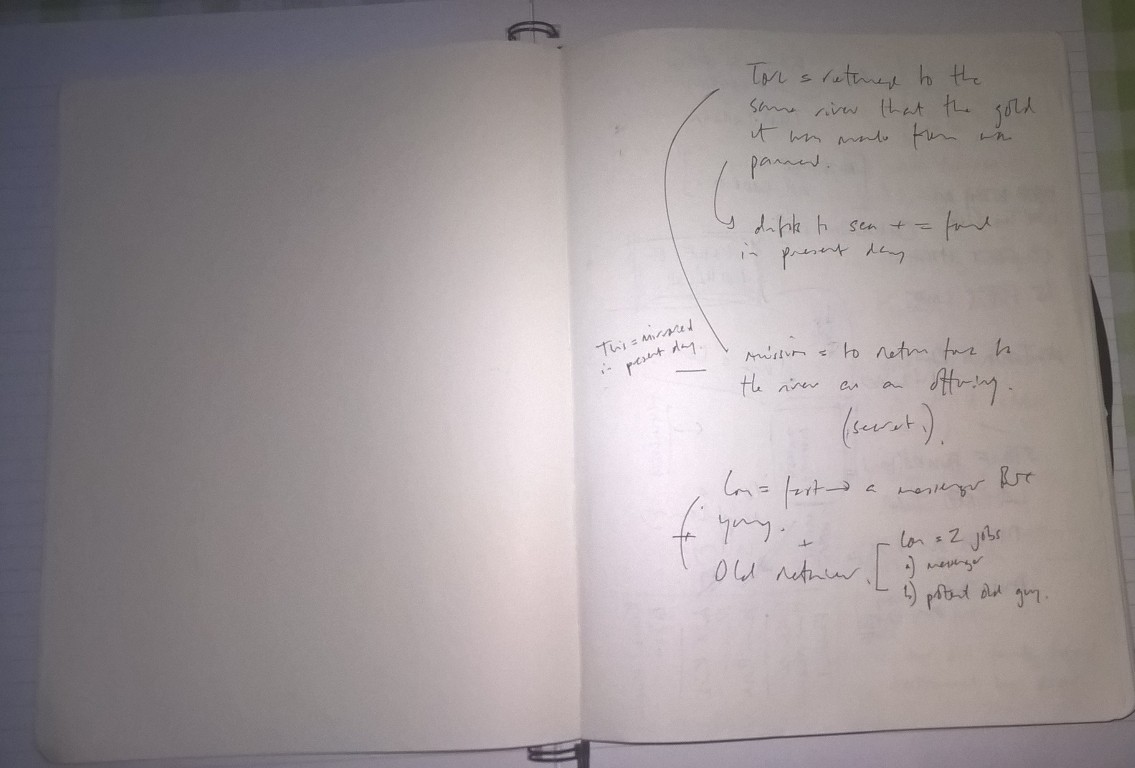 Torc = returned to the
same river that the gold
it was made from was
panned.
drifts to sea + = found
in present day
This = mirrored
in present day.
mission = to return torc to
the river as an offering.
(secret).
Con = fast → a messenger But
young.
+
Old retainer.
Con = 2 jobs
a) messenger
b) protect old guy.